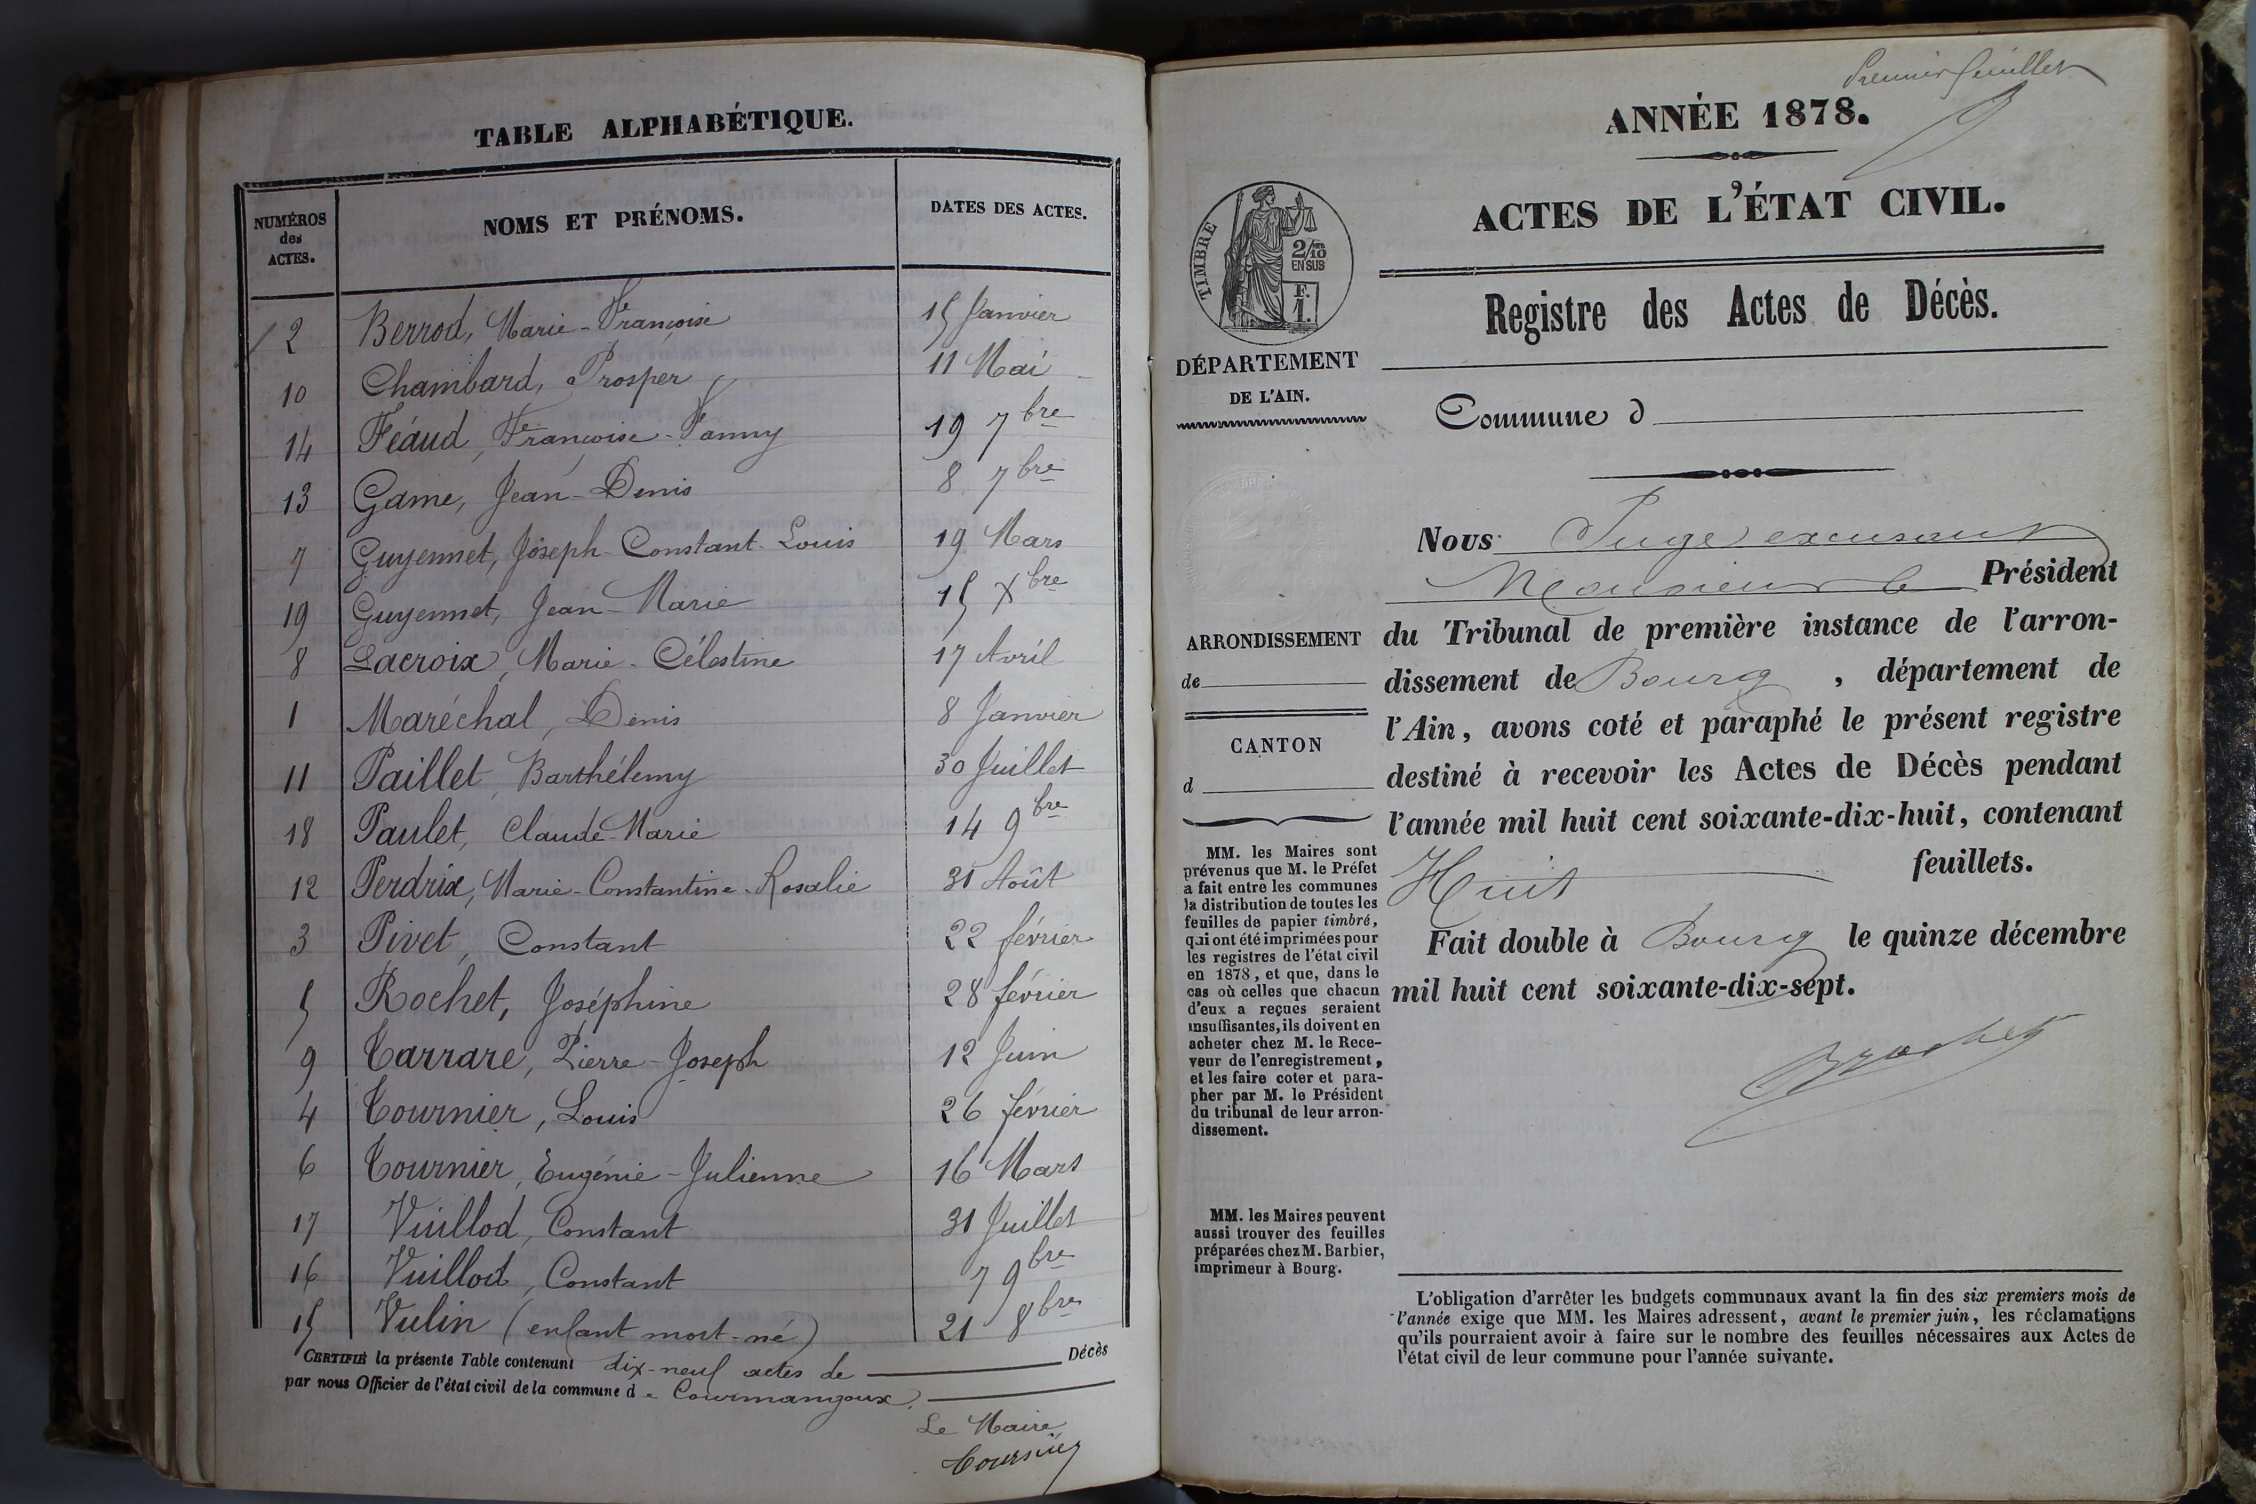 TABLE ALPHABÉTIQUE.
NUMÉROS des ACTES. NOMS ET PRÉNOMS. DATES DES ACTES.
2 Berrod, Marie-Françoise 15 Janvier
10 Chambard, Prosper 11 Mai
14 Féaud, Françoise-Fanny 19 7bre
13 Game, Jean-Denis 8 7bre
7 Guyennet, Joseph-Constant-Louis 19 Mars
19 Guyennet, Jean-Marie 15 Xbre
8 Lacroix, Marie-Célestine 17 Avril
1 Maréchal, Denis 8 Janvier
11 Paillet, Barthélemy 30 Juillet
18 Paulet, Claude-Marie 14 9bre
12 Perdrix, Marie-Constantine-Rosalie 31 Août
3 Pivet, Constant 22 février
5 Rochet, Joséphine 28 février
9 Tarrare, Pierre-Joseph 12 Juin
4 Tournier, Louis 26 février
6 Tournier, Eugénie-Julienne 16 Mars
17 Vuillod, Constant 31 Juillet
16 Vuillod, Constant 7 9bre
15 Vulin (enfant mort-né) 21 8bre
CERTIFIÉ la présente Table contenant dix-neuf actes de Décès
par nous Officier de l'état civil de la commune de Courmangoux.
Le Maire
Premier feuillet
ANNÉE 1878.
ACTES DE L'ÉTAT CIVIL.
Registre des Actes de Décès.
Commune d
TIMBRE
2/10 EN SUS
F. 1.
DÉPARTEMENT
DE L'AIN.
ARRONDISSEMENT
de
CANTON
d
MM. les Maires sont
prévenus que M. le Préfet
a fait entre les communes
la distribution de toutes les
feuilles de papier timbré,
qui ont été imprimées pour
les registres de l'état civil
en 1878, et que, dans le
cas où celles que chacun
d'eux a reçues seraient
insuffisantes, ils doivent en
acheter chez M. le Rece-
veur de l'enregistrement,
et les faire coter et para-
pher par M. le Président
du tribunal de leur arron-
dissement.
MM. les Maires peuvent
aussi trouver des feuilles
préparées chez M. Barbier,
imprimeur à Bourg.
Nous Juge excusant
Monsieur le Président
du Tribunal de première instance de l'arron-
dissement de Bourg, département de
l'Ain, avons coté et paraphé le présent registre
destiné à recevoir les Actes de Décès pendant
l'année mil huit cent soixante-dix-huit, contenant
Huit feuillets.
Fait double à Bourg le quinze décembre
mil huit cent soixante-dix-sept.
L'obligation d'arrêter les budgets communaux avant la fin des six premiers mois de
l'année exige que MM. les Maires adressent, avant le premier juin, les réclamations
qu'ils pourraient avoir à faire sur le nombre des feuilles nécessaires aux Actes de
l'état civil de leur commune pour l'année suivante.